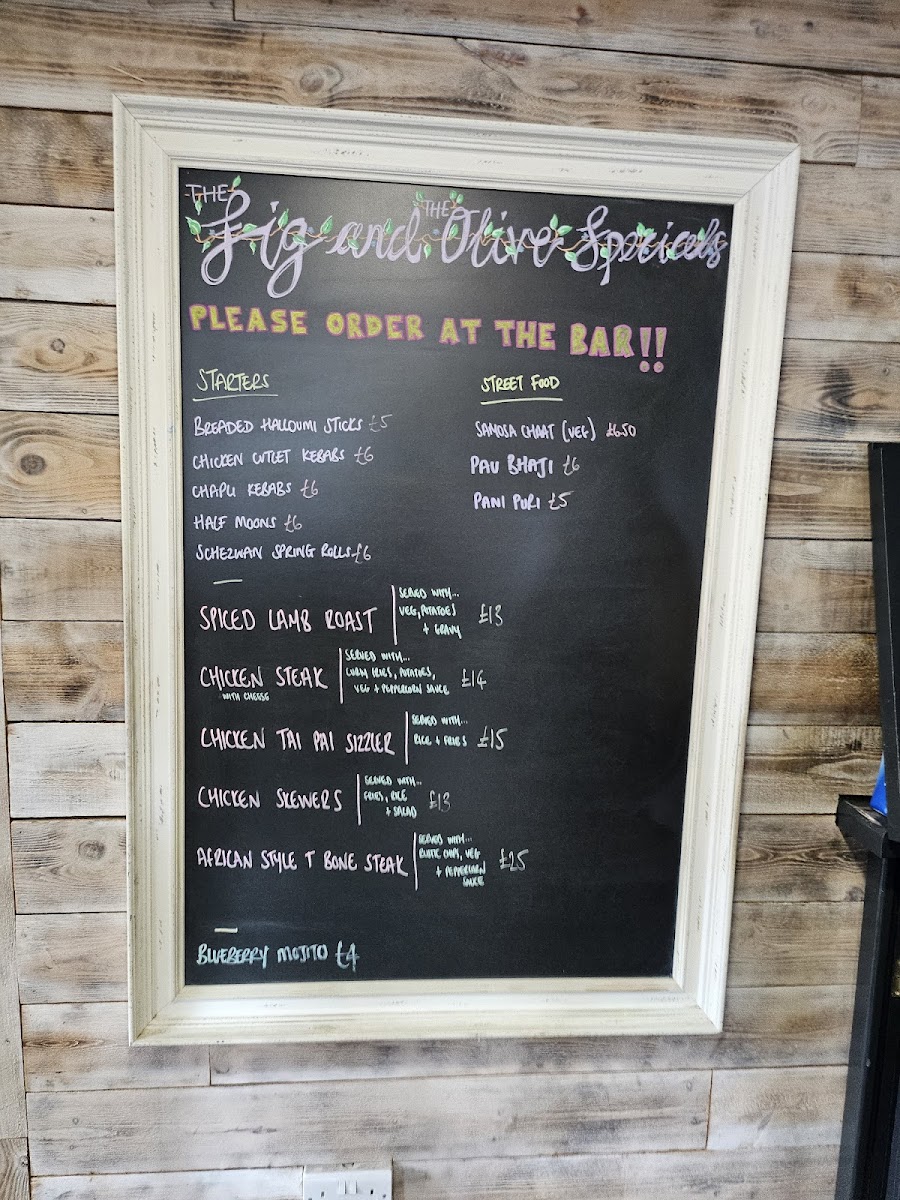 THE Fig and THE Olive Specials
PLEASE ORDER AT THE BAR!!
STARTERS
BREADED HALLOUMI STICKS £5
CHICKEN CUTLET KEBABS £6
CHAPLI KEBABS £6
HALF MOONS £6
SCHEZWAN SPRING ROLLS £6
STREET FOOD
SAMOSA CHAAT (VEG) £6.50
PAU BHAJI £6
PANI PURI £5
SPICED LAMB ROAST
SERVED WITH...
VEG, POTATOES
+ GRAVY
£13
CHICKEN STEAK
WITH CHEESE
SERVED WITH...
CURLY FRIES, POTATOES,
VEG + PEPPERCORN SAUCE
£14
CHICKEN TAI PAI SIZZLER
SERVED WITH...
RICE + FRIES
£15
CHICKEN SKEWERS
SERVED WITH...
FRIES, RICE
+ SALAD
£13
AFRICAN STYLE T BONE STEAK
SERVED WITH...
RUSTIC CHIPS, VEG
+ PEPPERCORN
SAUCE
£25
BLUEBERRY MOJITO £4